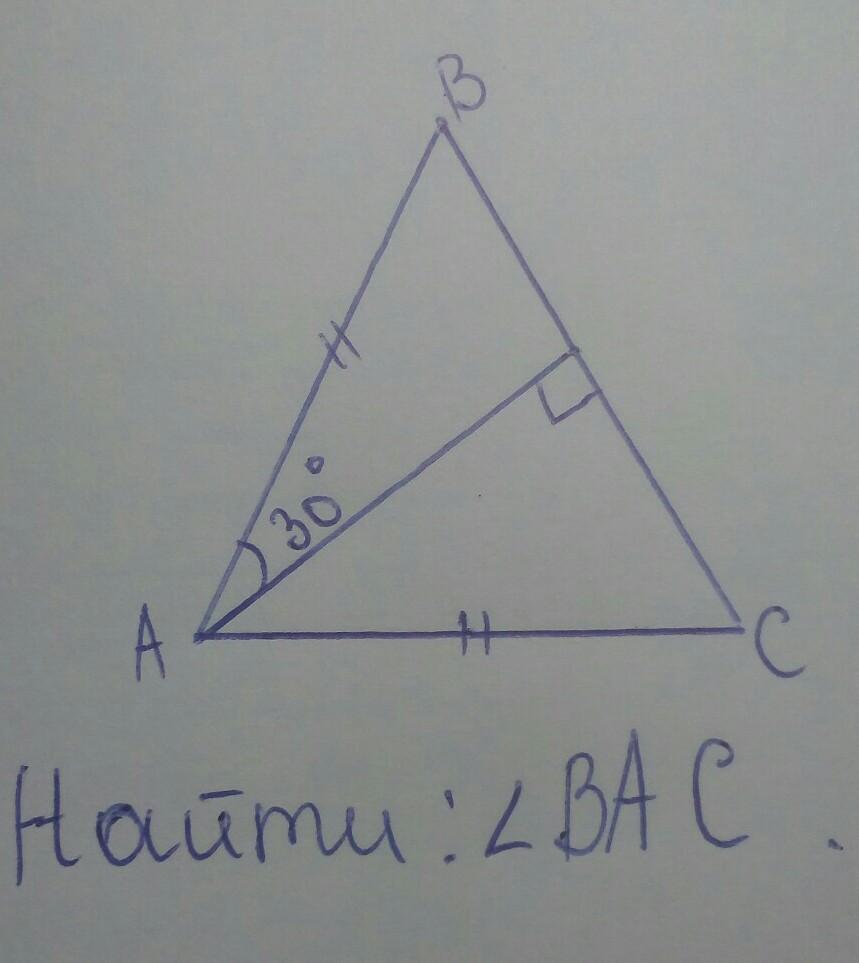 B
30°
A C
Найти: ∠BAC.